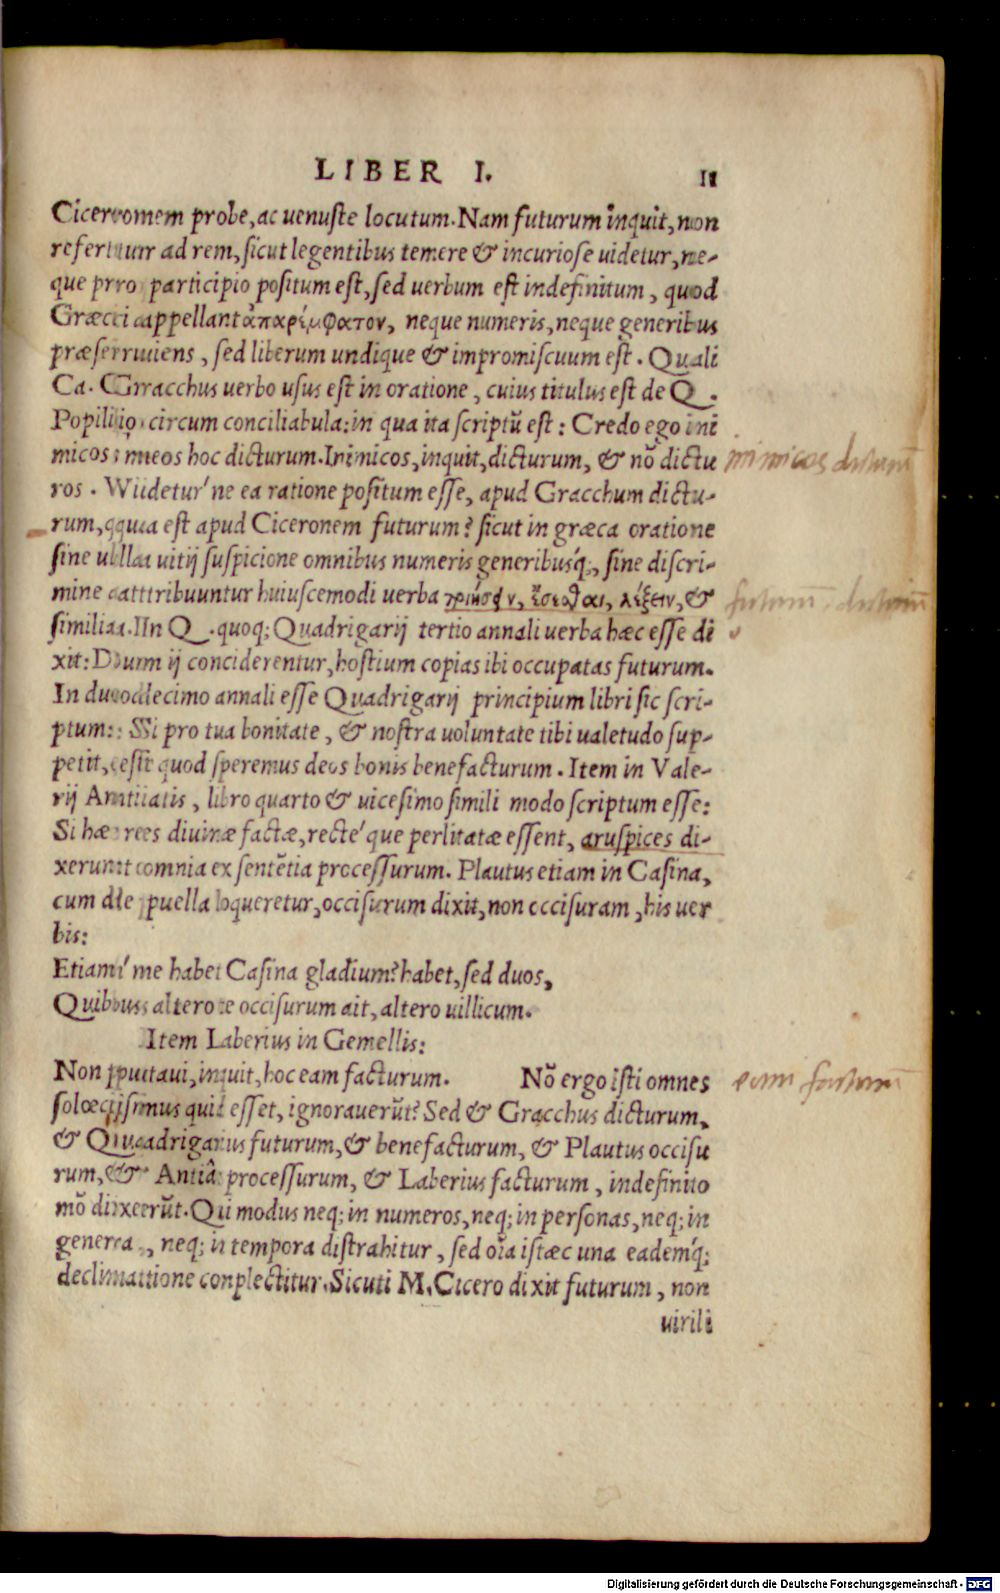 LIBER I. 11
Ciceronem probe, ac uenuste locutum. Nam futurum inquit, non
refertur ad rem, sicut legentibus temere & incuriose uidetur, ne-
que pro participio positum est, sed uerbum est indefinitum, quod
Græci appellant ἀπαρέμφατον, neque numeris, neque generibus
præseruiens, sed liberum undique & impromiscuum est. Quali
Ca. Gracchus uerbo usus est in oratione, cuius titulus est de Q.
Popilio circum conciliabula: in qua ita scriptū est: Credo ego ini
micos meos hoc dicturum. Inimicos, inquit, dicturum, & nō dictu
ros. Videtur'ne ea ratione positum esse, apud Gracchum dictu-
rum, quia est apud Ciceronem futurum? sicut in græca oratione
sine ulla uitij suspicione omnibus numeris generibusq;, sine discri-
mine attribuuntur huiuscemodi uerba ποιήσειν, ἔσεσθαι, λέξειν, &
similia. In Q. quoq; Quadrigarij tertio annali uerba hæc esse di
xit: Dum ij conciderentur, hostium copias ibi occupatas futurum.
In duodecimo annali esse Quadrigarij principium libri sic scri-
ptum: Si pro tua bonitate, & nostra uoluntate tibi ualetudo sup-
petit, est quod speremus deos bonis benefacturum. Item in Vale-
rij Antiatis, libro quarto & uicesimo simili modo scriptum esse:
Si hæ res diuinæ factæ, recte'que perlitatæ essent, aruspices di-
xerunt omnia ex sentētia processurum. Plautus etiam in Casina,
cum de puella loqueretur, occisurum dixit, non occisuram, his uer
bis:
Etiam'me habet Casina gladium? habet, sed duos,
Quibus altero te occisurum ait, altero uillicum.
Item Laberius in Gemellis:
Non putaui, inquit, hoc eam facturum. Nō ergo isti omnes
solœcismus quid esset, ignorauerūt? Sed & Gracchus dicturum,
& Quadrigarius futurum, & benefacturum, & Plautus occisu
rum, & Antiâs processurum, & Laberius facturum, indefinito
mō dixerūt. Qui modus neq; in numeros, neq; in personas, neq; in
genera, neq; in tempora distrahitur, sed oīa istæc una eademq;
declinatione conplectitur. Sicuti M. Cicero dixit futurum, non
uirili
inimicos dicturū
futurum dicturum
eam facturum
Digitalisierung gefördert durch die Deutsche Forschungsgemeinschaft - DFG